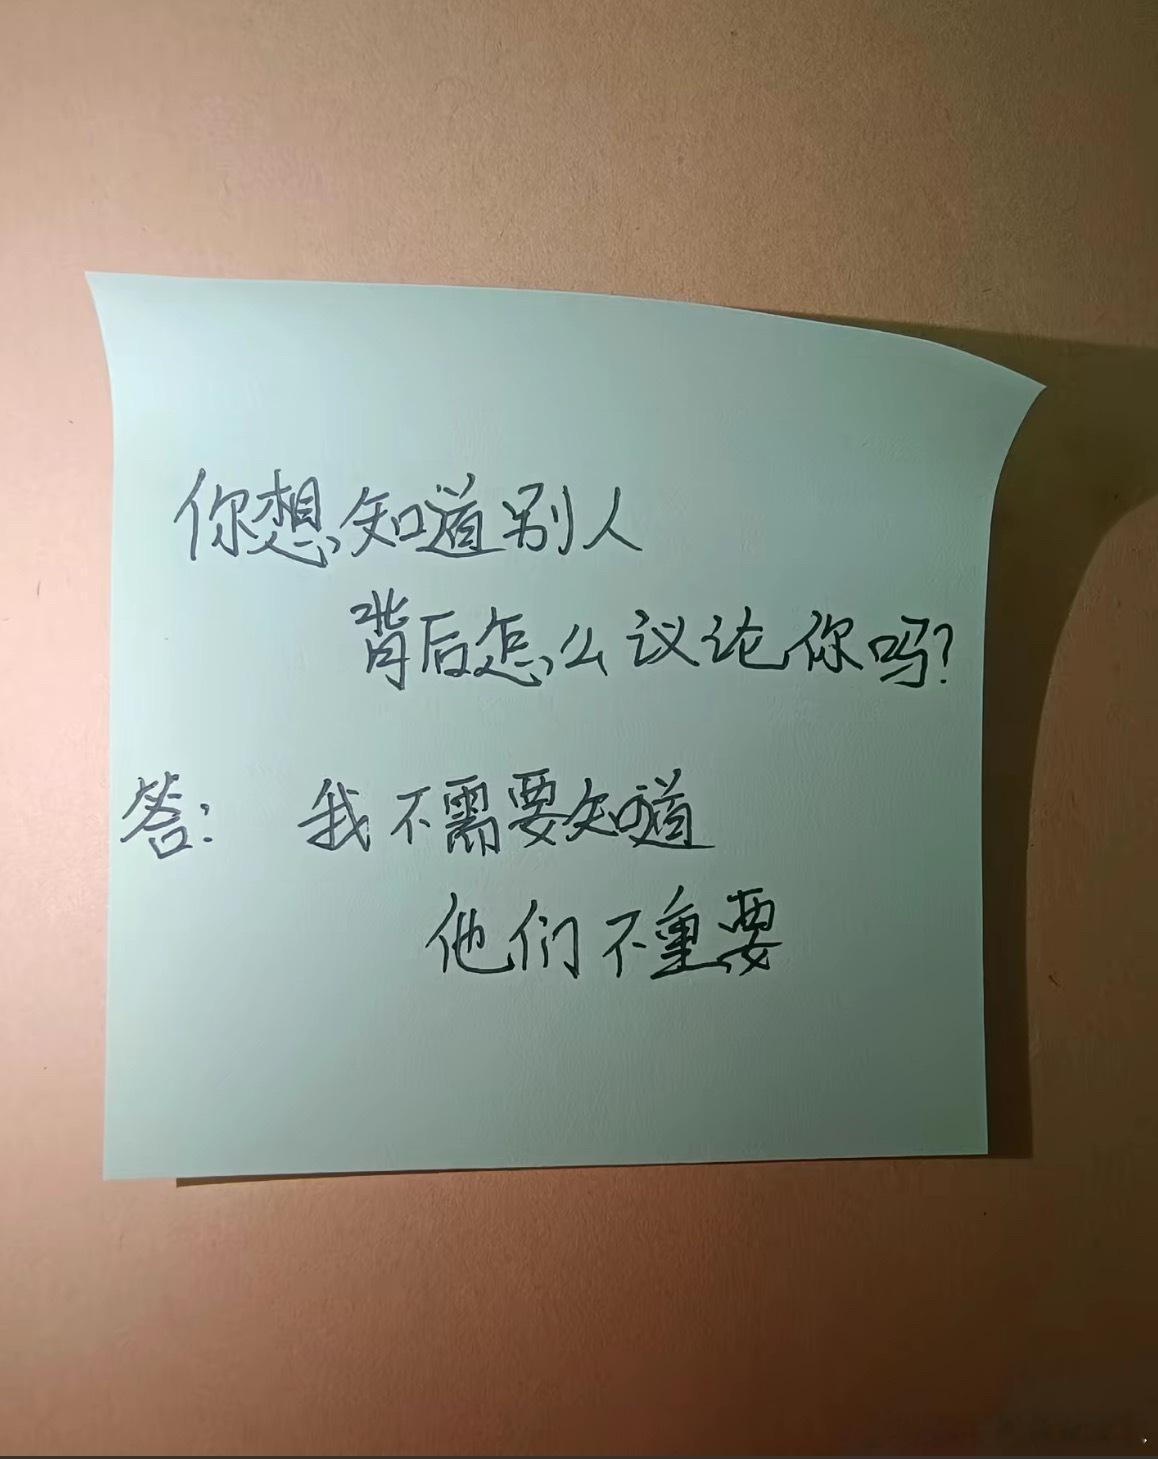 你想知道别人
背后怎么议论你吗?
答: 我不需要知道
他们不重要